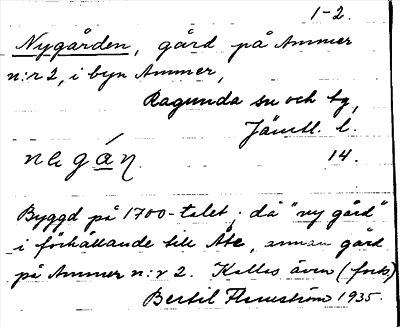 1-2.
Nygården, gård på Ammer
n:r 2, i byn Ammer,
Ragunda sn och tg,
Jämtl. l.
14.
Byggd på 1700-talet; då "ny gård"
i förhållande till Åte, annan gård
på Ammer n:r 2. Kallas även (forts)
Bertil Flemström 1935.